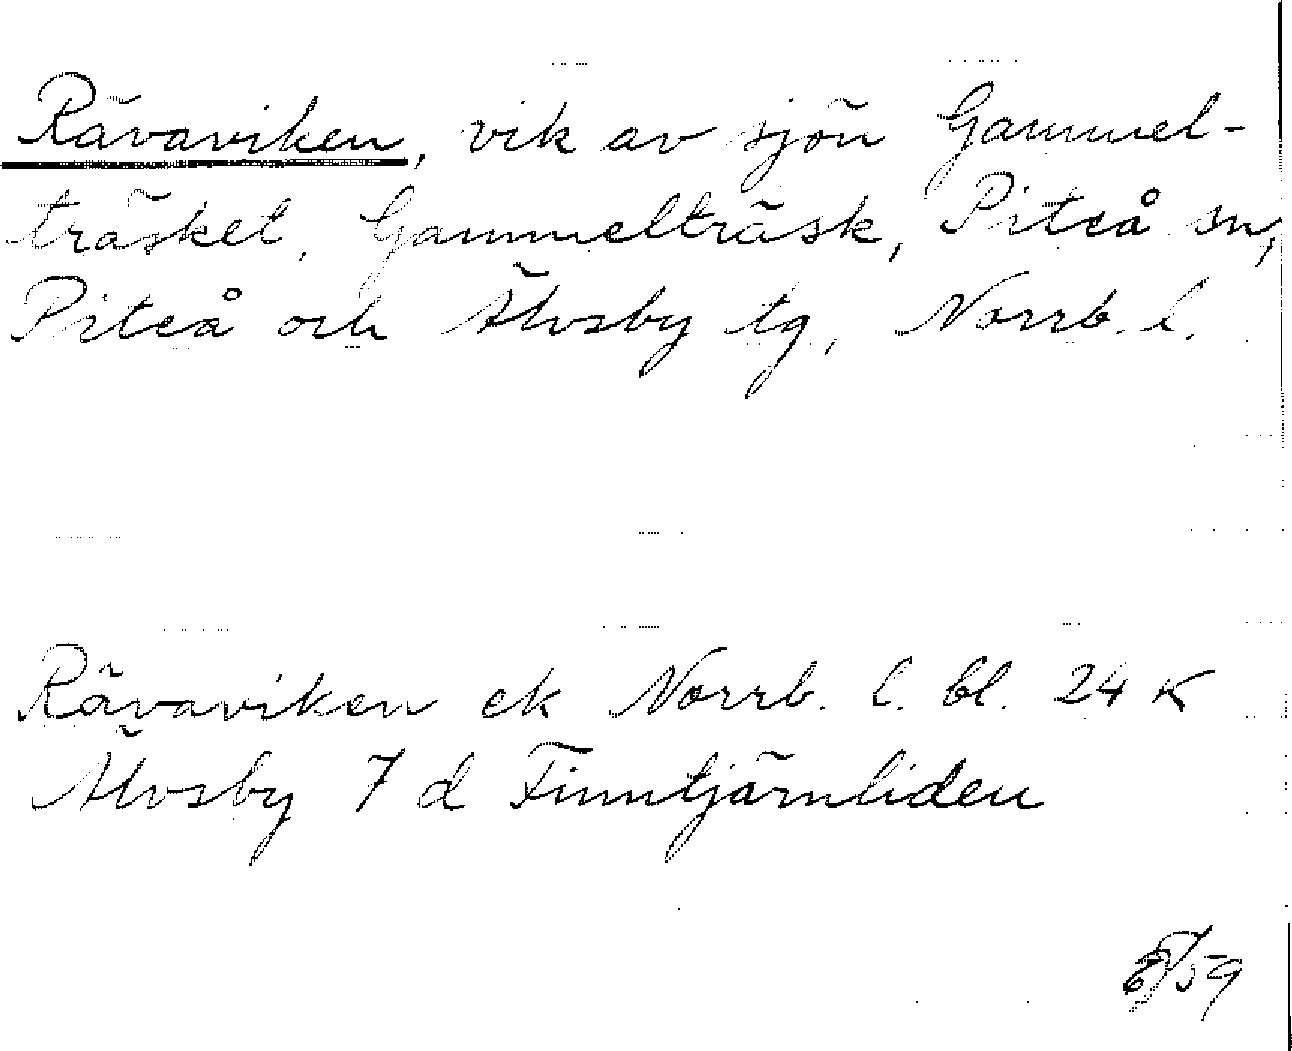 Rävaviken, vik av sjön Gammel-
träsket, Gammelträsk, Piteå sn,
Piteå och Älvsby tg, Norrb. l.
Rävaviken ek Norrb. l. bl. 24 K
Älvsby 7 d Finntjärnliden
/59